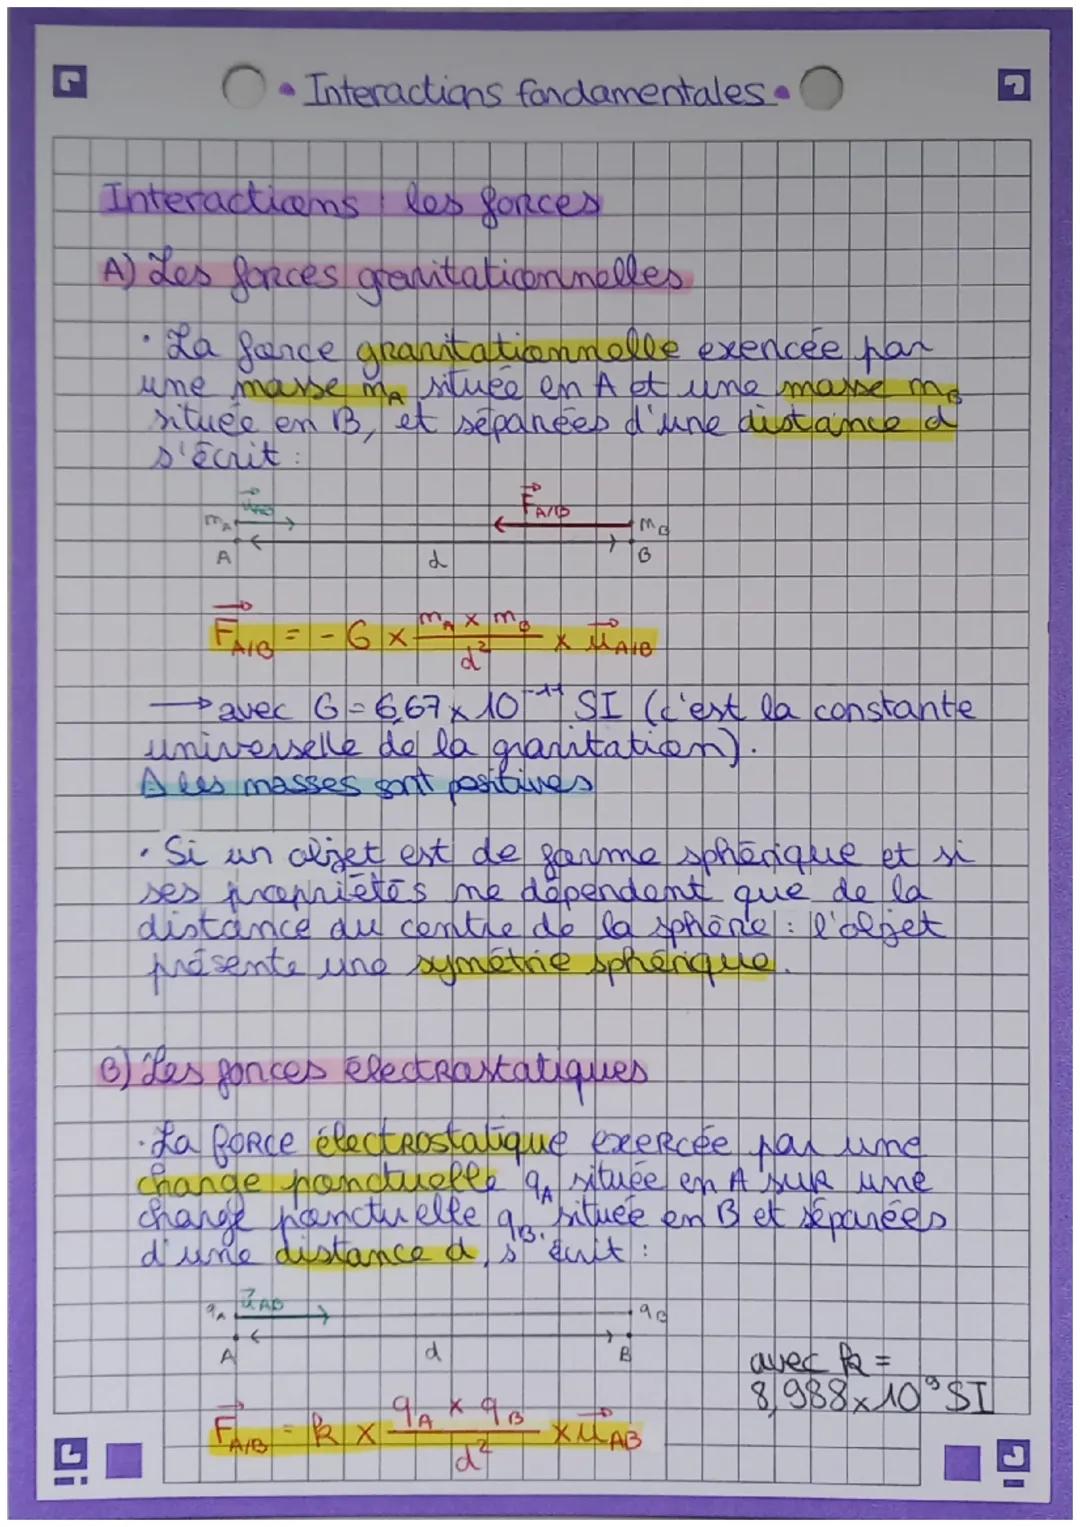 • Interactions fondamentales •
Interactions : les forces
A) Les forces gravitationnelles
• La force gravitationnelle exercée par
une masse mA située en A et une masse mB
située en B, et séparées d'une distance d
s'écrit :
uAB FA/B
mA mB
A d B
FA/B = - G × mA × mB / d² × uA/B
→ avec G = 6,67 × 10⁻¹¹ SI (c'est la constante
universelle de la gravitation).
⚠ les masses sont positives
• Si un objet est de forme sphérique et si
ses propriétés ne dépendent que de la
distance du centre de la sphère : l'objet
présente une symétrie sphérique.
B) Les forces électrostatiques
• La force électrostatique exercée par une
charge ponctuelle qA située en A sur une
charge ponctuelle qB située en B et séparées
d'une distance d, s'écrit :
qA uAB qB
A d B
avec k =
8,988×10⁹ SI
FA/B = k × qA × qB / d² × uAB